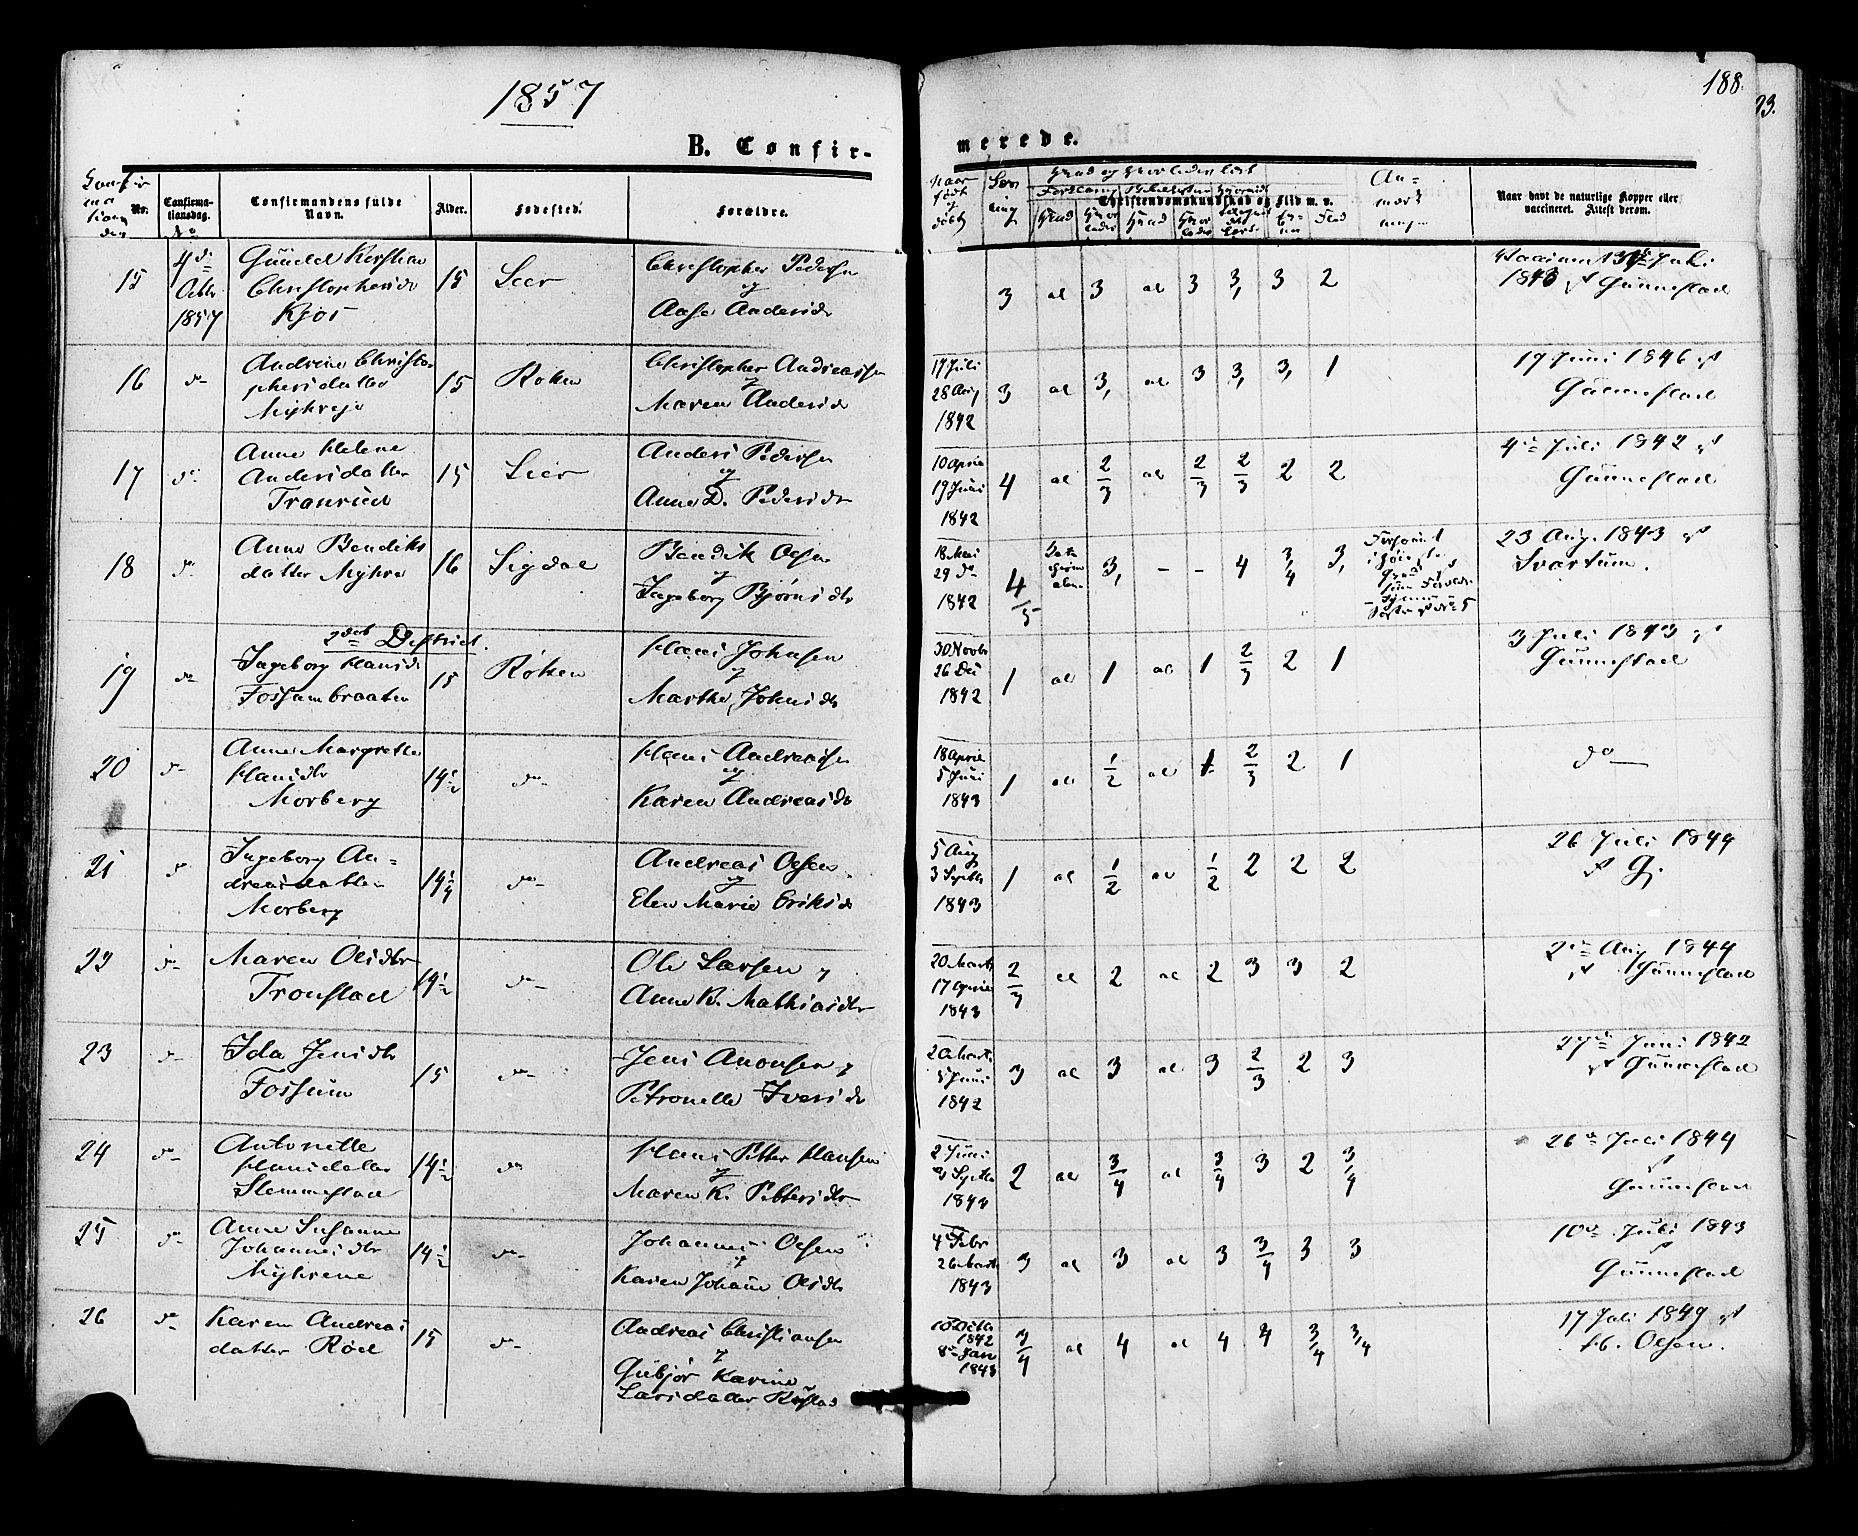 1857
188.
93.
B. Confir-
merede.
Nr.
Confirma-
tionsdag.
Confirmandens fulde
Navn.
Alder.
Fødested.
Forældre.
Christendomskundskab og Flid m. v.
Naar havt de naturlige Kopper eller
vaccineret. Attest derom.
15
4de Octbr 1857
Christophersdr
Kjos
15
Lier
Christopher Pedersen
og
Aase Andersdr
3 al 3 al 3 3, 3 2
Juli
1843 Gunnestad
16
do
Andrine Christo-
phersdatter
Myhreje
15
Røken
Christopher Andreassen
og
Maren Andersdr
17 Juli
28 Aug
1842
3 al 3, al 3 3, 3, 1
17 Juni 1846 af
Gunnestad
17
do
Anne Helene
Andersdatter
Tranrud
15
Lier
Anders Pedersen
og
Anne D. Pedersdr
10 April
19 Juni
1842
4 al 2/3 al 2/3 2/3 2 2
4de Juli 1842 af
Gunnestad
18
do
Anne Bendiks
datter Myhre
16
Sigdal
Bendik Olsen
og
Ingeborg Bjørnsdtr
18 Mai
29 do
1842
4/5 3, - - 4 3/4 3,
23 Aug. 1843 af
Svartum.
2det District.
19
do
Ingeborg Hansdr
Fossumbraaten
15
Røken
Hans Johnsen
og
Marthe Johnsdtr
30 Novbr
26 Dec
1842
1 al 1 al 1 2/3 2 1
3 Juli 1843 af
Gunnestad
20
do
Anne Margrethe
Hansdtr
Morberg
14 1/2
do
Hans Andreassen
og
Karen Andreasdr
18 April
5 Juni
1843
1 al 1/2 al 1 2/3 2 1
do
21
do
Ingeborg An-
dreasdatter
Morberg
14 1/4
do
Andreas Olsen
og
Elen Marie Eriksdr
5 Aug
3 Septbr
1843
1 al 1/2 al 1/2 2 2 2
26 Juli 1844
af G.
22
do
Maren Olsdtr
Tronstad
14 1/2
do
Ole Larsen og
Anne K. Mathiasdtr
20 Marts
17 April
1843
2/3 al 2 al 2 3 3 2
2den Aug 1844
af Gunnestad
23
do
Ida Jensdtr
Fossum
15
do
Jens Anonsen og
Petronelle Iversdr
20 Marts
5 Juni
1842
3 al 3 al 3 2/3 2 3
27de Juni 1842
af Gunnestad
24
do
Antonette
Hansdatter
Slemmestad
14 1/2
do
Hans Petter Hansen
og
Maren K. Pettersdtr
2 Juni
3 Septbr
1843
2 al 3/4 al 3/4 3 2 3/4
26de Juli 1844
af
Gunnestad
25
do
Anne Susanne
Johannesdtr
Myhrene
14 1/2
do
Johannes Olsen
og
Karen Johanne Olsdtr
4 Febr
26 Marts
1843
3 al 3 al 3 3/4 3 3
10de Juli 1843
af
Gunnestad
26
do
Karen Andreas
datter Rød
15
do
Andreas Christiansen
og
Gubjør Karine
Larsdatter
1842
8de Jan
1843
3/4 al 4 al 4 4 3/4 3/4
17 Juli 1849 af
Olsen.